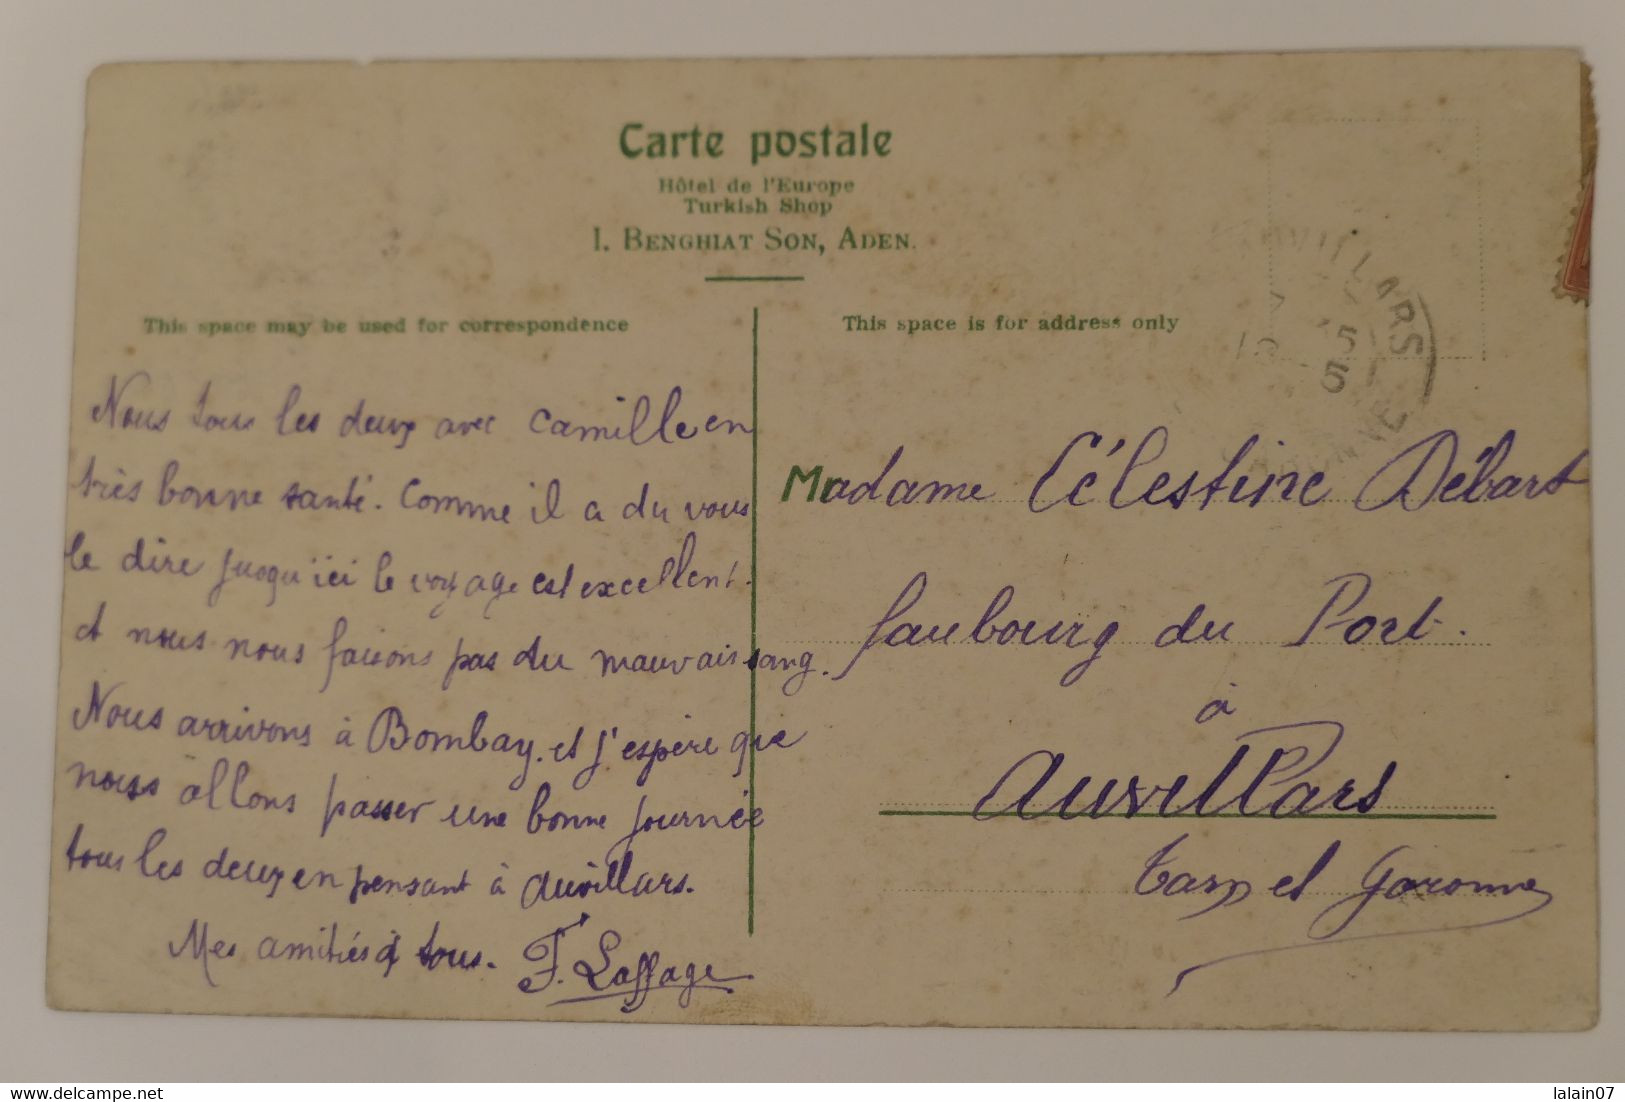 Carte postale
Hôtel de l'Europe
Turkish Shop
I. BENGHIAT SON, ADEN.
This space may be used for correspondence
Nous tous les deux avec Camille en
très bonne santé. Comme il a du vous
le dire jusqu'ici le voyage est excellent.
et nous nous faisons pas du mauvais sang.
Nous arrivons à Bombay. et j'espère que
nous allons passer une bonne journée
tous les deux en pensant à Auvillars.
Mes amitiés à tous. F. Laffage
This space is for address only
AUVILLARS
5
5
Madame Célestine Débart
faubourg du Port.
à
Auvillars
Tarn et Garonne
delcampe.net
lalain07